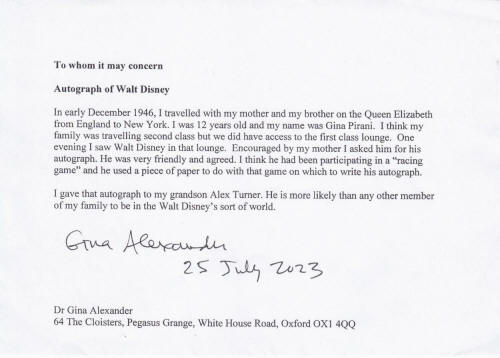 To whom it may concern
Autograph of Walt Disney
In early December 1946, I travelled with my mother and my brother on the Queen Elizabeth
from England to New York. I was 12 years old and my name was Gina Pirani.  I think my
family was travelling second class but we did have access to the first class lounge.  One
evening I saw Walt Disney in that lounge.  Encouraged by my mother I asked him for his
autograph. He was very friendly and agreed. I think he had been participating in a “racing
game” and he used a piece of paper to do with that game on which to write his autograph.
I gave that autograph to my grandson Alex Turner. He is more likely than any other member
of my family to be in the Walt Disney's sort of world.
Gina Alexander
25 July 2023
Dr Gina Alexander
64 The Cloisters, Pegasus Grange, White House Road, Oxford OX1 4QQ